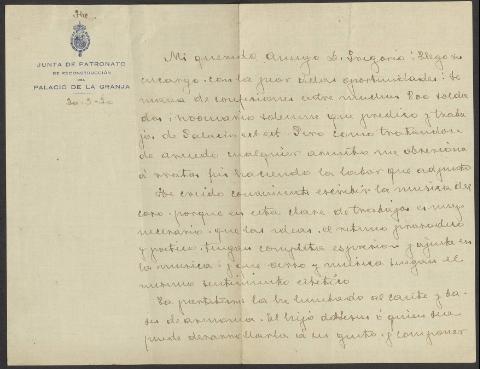 JUNTA DE PATRONATO
DE RECONSTRUCCIÓN
DEL
PALACIO DE LA GRANJA
20-3-20
Mi querido Amigo D. Gregorio: Llegó su
encargo con la peor de las oportunidades: Se
mana de confesiones entre muchos 800 solda
dos; novenario solemne que predico y traba
jos de Palacio et et. Pero como tratándose
de cualquier asunto me obsesiona
á ratos fuí haciendo la labor que adjunto
He creido conveniente escribir la musica del
coro, porque en esta clase de trabajos es muy
necesario que las ideas, el ritmo prosodico
y poetico tengan completa expresion y ajuste en
la musica, y que verso y musica tengan el
mismo sentimiento estético
La partitura la he limitado al cante y ba-
ses de armonia. El hijo de ó quien sea
puede desarrollarla á su gusto y componer